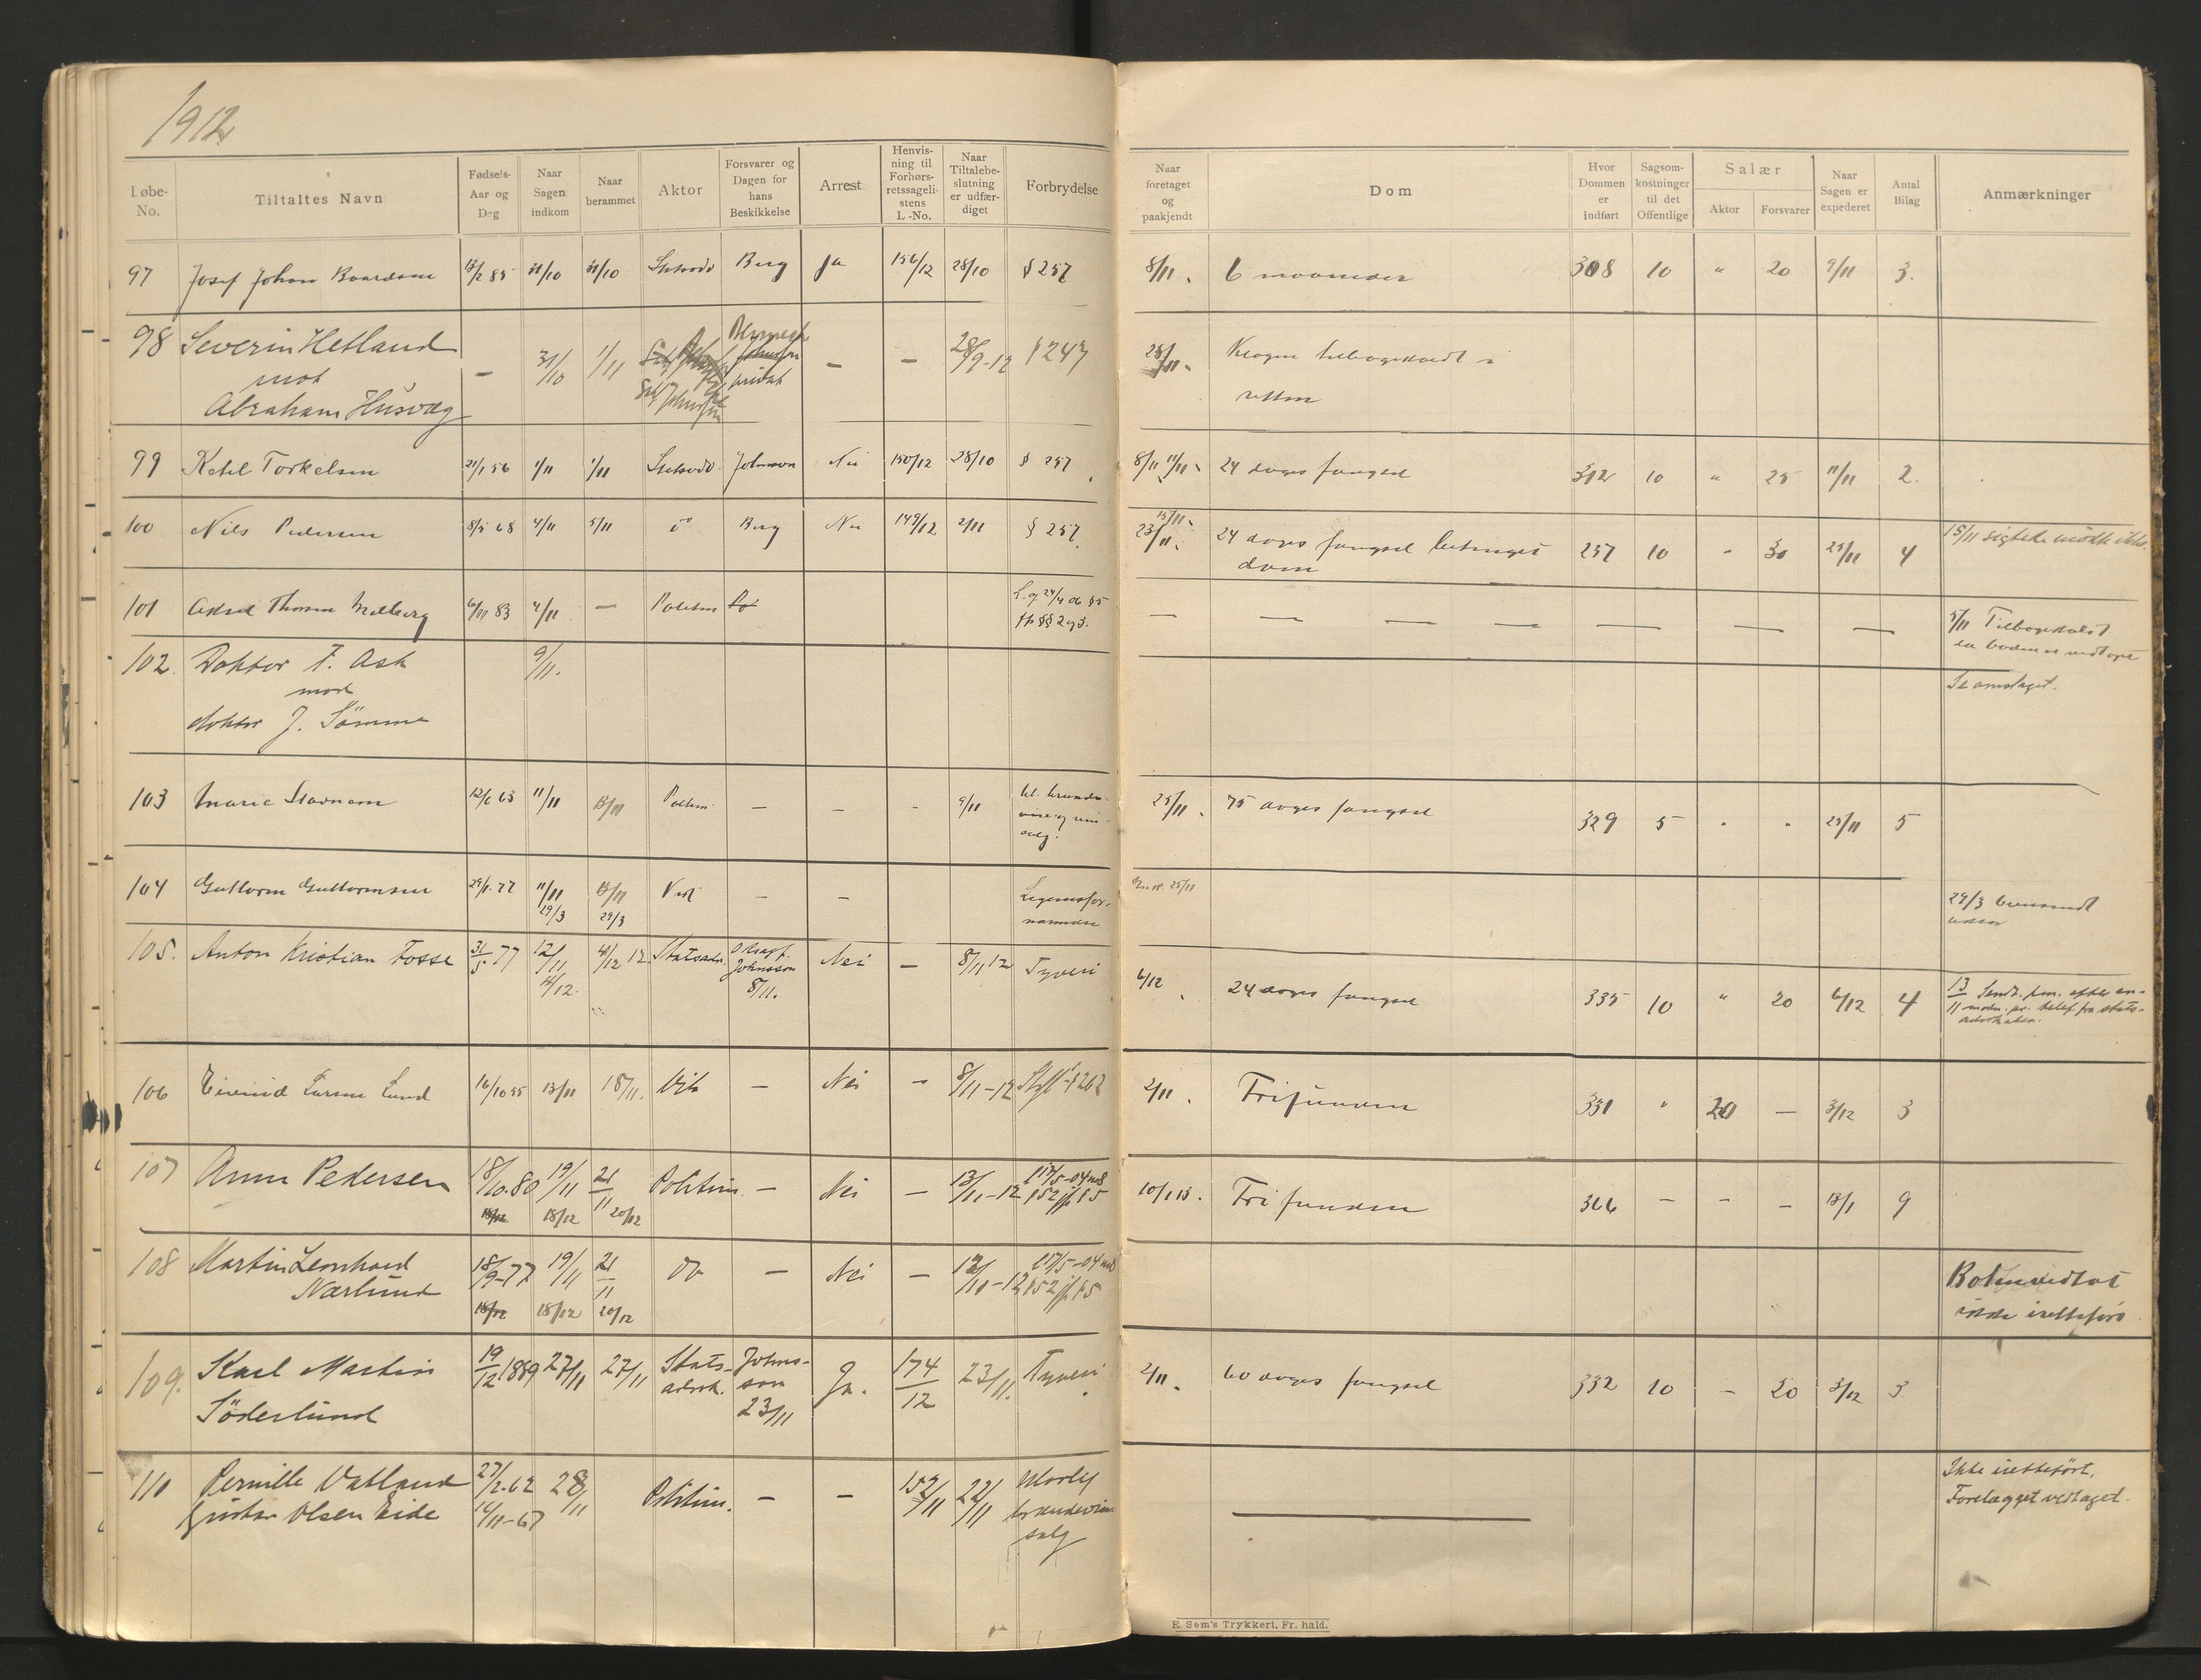 1912
Løbe-No.
Tiltaltes Navn
Fødsels-Aar og Dag
Naar Sagen indkom
Naar berammet
Aktor
Forsvarer og Dagen for hans Beskikkelse
Arrest
Henvisning til Forhørsretssagelistens L.-No.
Naar Tiltalebeslutning er udfærdiget
Forbrydelse
Naar foretaget og paakjendt
Dom
Hvor Dommen er indført
Sagsomkostninger til det Offentlige
Salær
Aktor
Forsvarer
Naar Sagen er expederet
Antal Bilag
Anmærkninger
97 Josef Johan 13/2 85 31/10 31/10 Berg Ja 156/12 28/10 § 257 8/11. 6 maaneder 308 10 " 20 9/11 3.
98 Severin Hetland
mot
Abraham Husvæg
— 31/10 1/11 privat — — 28/9-12 § 247 25/11. Klagen tilbagekaldt i
retten
99 Ketil Torkelsen 21/1 56 1/11 1/11 Johnson Nei 150/12 28/10 § 257 8/11 11/11. 24 dages fængsel 312 10 " 25 11/11 2.
100 Nils Pedersen 8/5 68 4/11 5/11 do Berg Nei 149/12 2/11 § 257. 15/11. 23/11. 24 dages fængsel betinget
dom
237 10 " 30 25/11 4 15/11 sigtede mødte ikke.
101 Thorsen 6/11 83 4/11 — Politim — — — — — — — 5/11 Tilbagekaldt
da boden er vedtaget
102. Doktor F. Ask
mod
doktor J. Sömme
9/11.
Se omslaget.
103 Marie Stavnem 12/6 63 11/11 13/11 Politim. — — - 9/11 25/11. 75 dages fængsel 329 5 " " 25/11 5
104 Guttorm Guttormsen 29/1-77 11/11 13/11 — — Legemsfor-
nærmelse
29/3 29/3
25/11
29/3
105. Anton Kristian Fosse 31/5 77 12/11 4/12 12. Statsadv. O.
Johnsson
8/11.
4/12.
Nei — 8/11 12 Tyveri 6/12. 24 dages fængsel 335 10 " 20 6/12 4 13/11 Sendt pm. efter an-
modn. pr. telef. fra stats-
advokaten.
106 Eivind Larsen Lund 16/10 55 13/11 18/11. — Nei — 8/11-12 § 262 2/11. Frifunden 331 " 20 — 3/12 3
107 Anna Pedersen 18/10-80 19/11 21/11 Politim. — Nei — 13/11-12 l 17/5-04 no 8
§ 52 jf. § 5
18/12 18/12 20/12
10/1 13. Frifunden 366 — — — 13/1 9
108 Martin Leonhard
Nærlund
18/9-77 19/11 21/11 Do — Nei — 12/11-12 l 17/5-04 no 8
§ 52 jf. § 5
18/12 18/12 20/12
Boten vedtat
ikke iretteført
109. Karl Martin
Söderlund
19/12 1889 27/11 27/11 Stats-
advok.
Johns-
son
23/11
Ja. 174/12 23/11. Tyveri 2/11. 60 dages fængsel 332 10 — 20 3/12 3
110 Pernille Vatland
Gustav Olsen Eide
27/2-62
14/11-67
28/11 Politim. — — 152/11 22/11 Ulovlig
brændevin
salg
Ikke iretteført.
Forelægget vedtaget.
E. Sem's Trykkeri, Fr. hald.